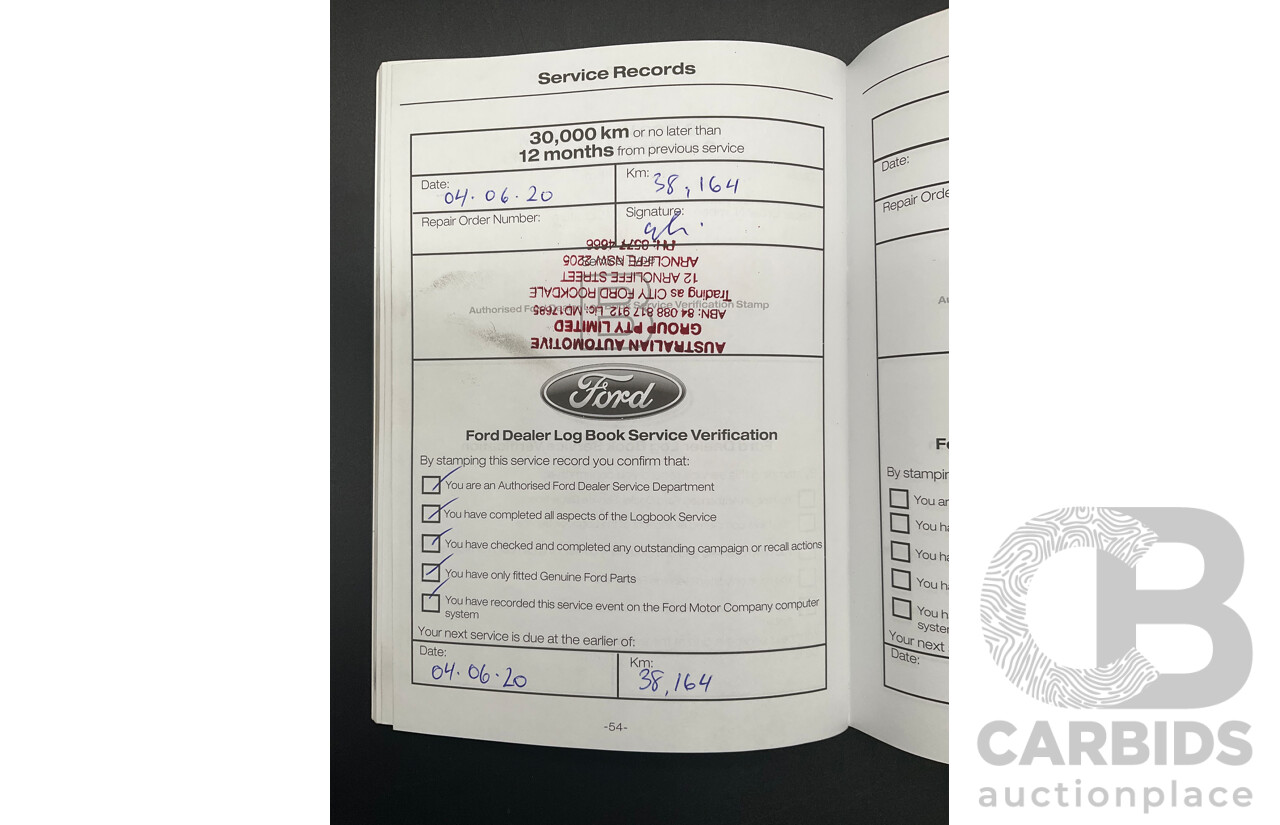 Service Records
30,000 km or no later than
12 months from previous service
Date: 04.06.20
Km: 38,164
Repair Order Number:
Signature:
AUSTRALIAN AUTOMOTIVE
GROUP PTY LIMITED
ABN: 84 088 817 912 Lic. MD17685
Trading as CITY FORD ROCKDALE
12 ARNCLIFFE STREET
ARNCLIFFE NSW 2205
PH: 8577 4666
Authorised Ford Service Verification Stamp
B
Ford
Ford Dealer Log Book Service Verification
By stamping this service record you confirm that:
You are an Authorised Ford Dealer Service Department
You have completed all aspects of the Logbook Service
You have checked and completed any outstanding campaign or recall actions
You have only fitted Genuine Ford Parts
You have recorded this service event on the Ford Motor Company computer
system
Your next service is due at the earlier of:
Date: 04.06.20
Km: 38,164
-54-
Date:
Repair Orde
By stampin
You ar
You ha
You ha
You h
You h
syste
Your next
Date:
CB
CARBIDS
auctionplace